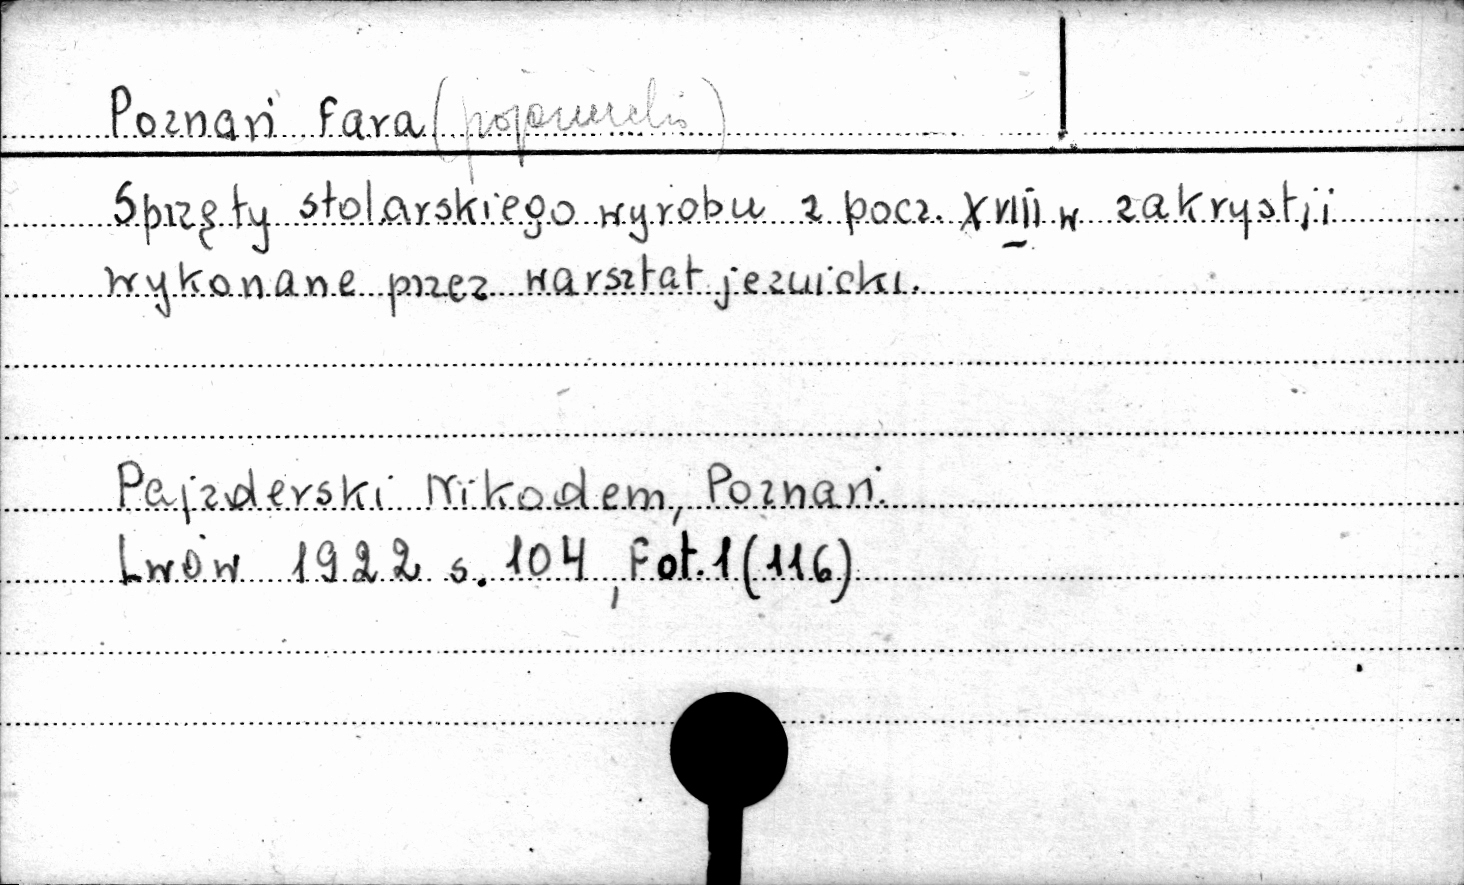 Poznań Fara (pojezuicki)
Sprzęty stolarskiego wyrobu z pocz. XVIII w zakrystji
wykonane przez warsztat jezuicki.
Pajzderski Nikodem, Poznań.
Lwów 1922 s. 104, Fot. 1 (116)